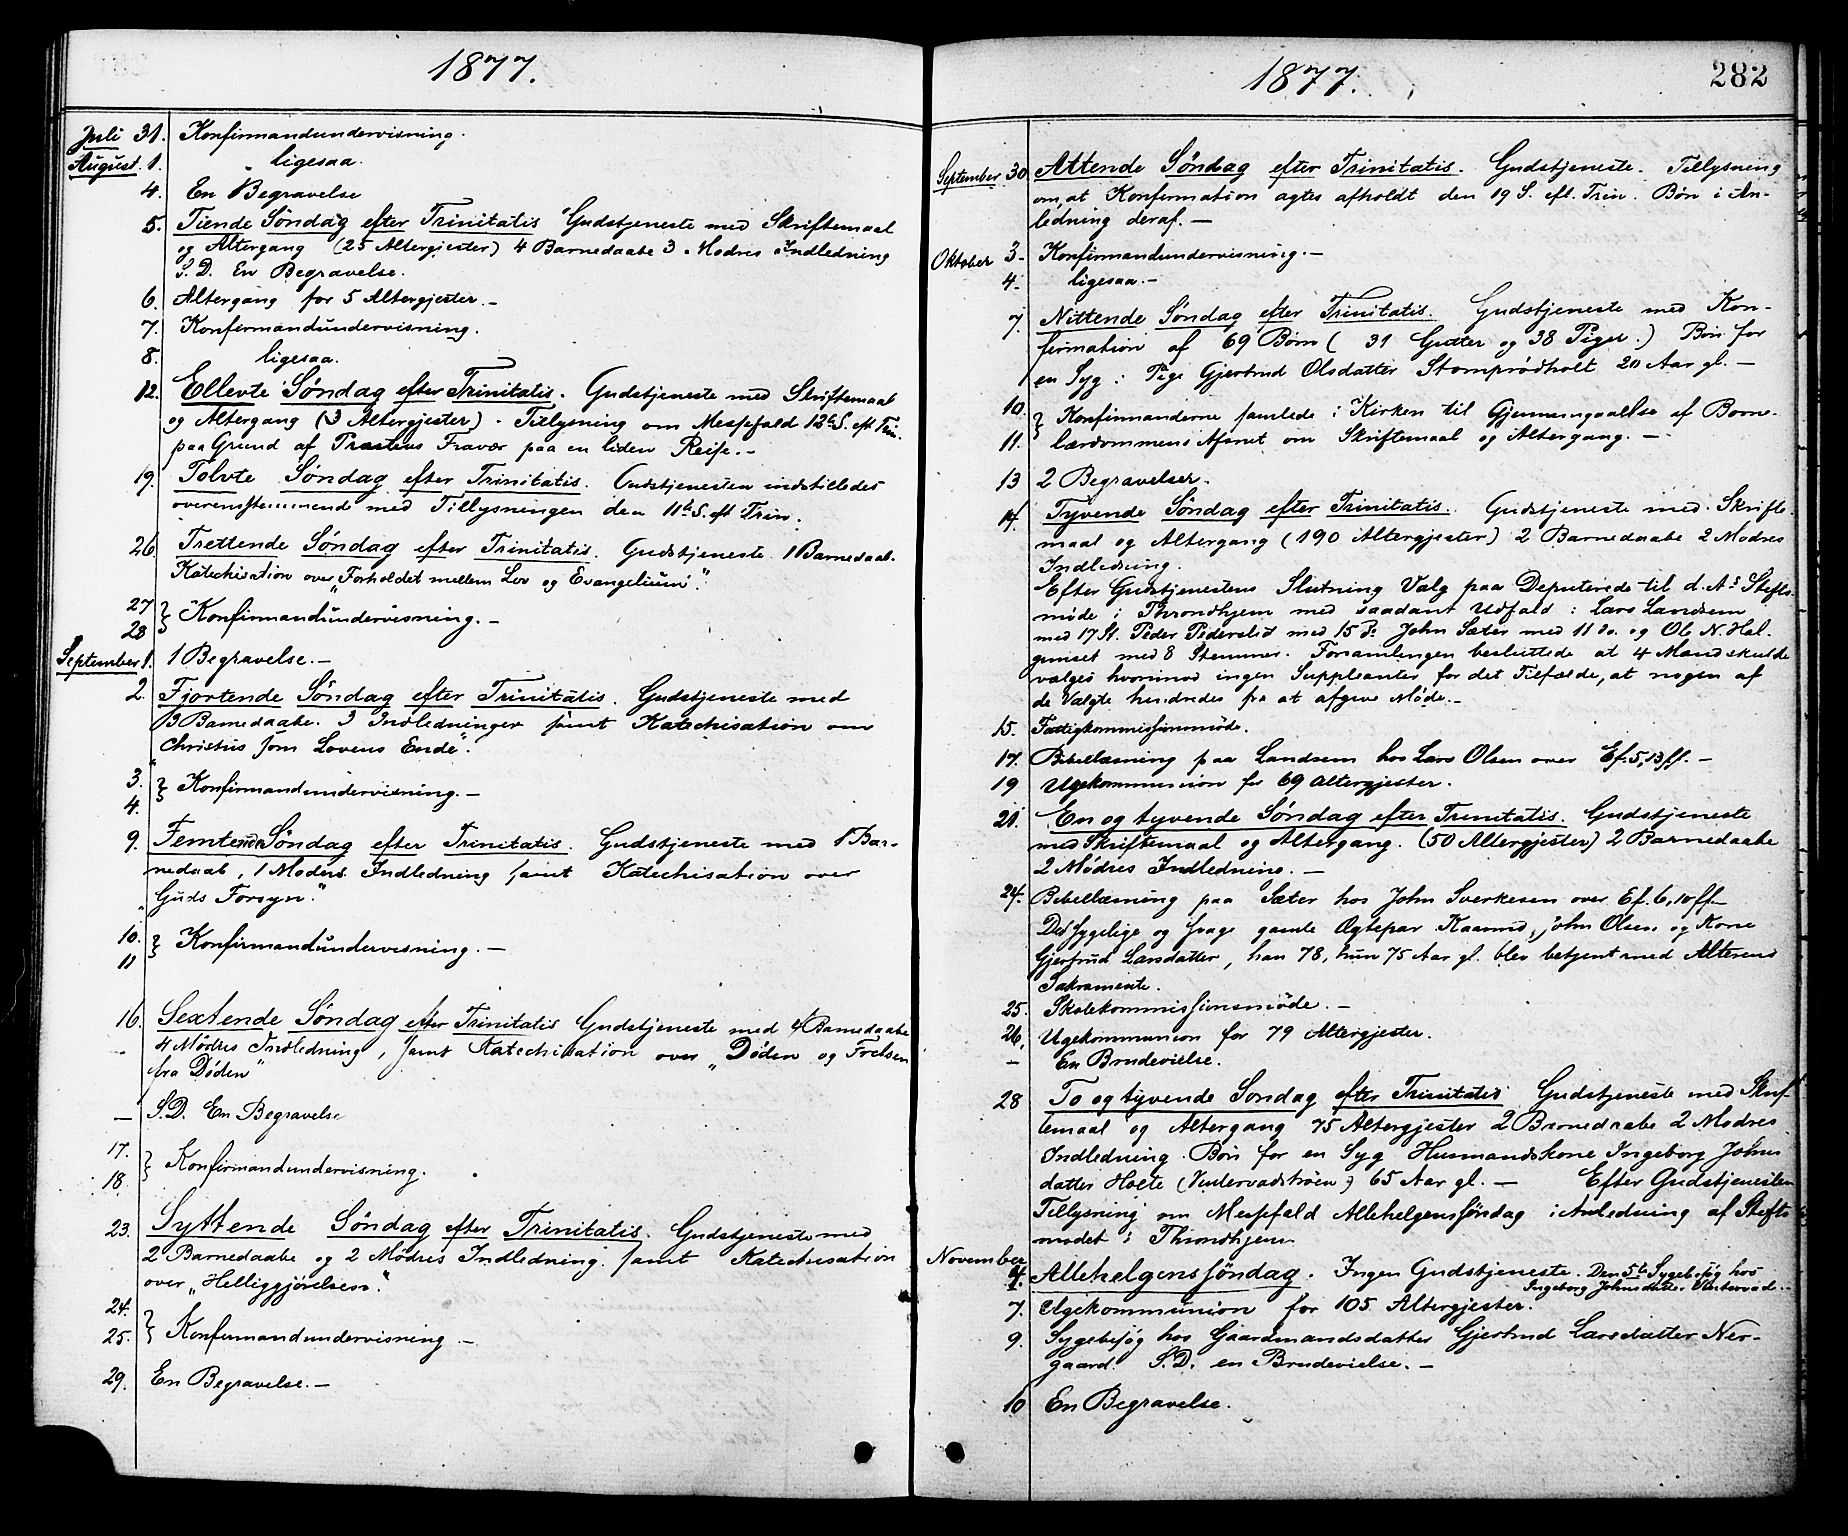 1877.
Juli 31. Konfirmandundervisning.
August 1. ligesaa.
4. En Begravelse
5. Tiende Søndag efter Trinitatis Gudstjeneste med Skriftemaal
og Altergang (25 Altergjester) 4 Barnedaabe 3 Mødres Indledning
S. D. En Begravelse.
6. Altergang for 5 Altergjester. –
7. Konfirmandundervisning.
8. ligesaa.
12. Ellevte Søndag efter Trinitatis. Gudstjeneste med Skriftemaal
og Altergang (3 Altergjester) . Tillysning om Messefald 12te S. eft Trin.
paa Grund af Præstens Fravær paa en liden Reise. –
19. Tolvte Søndag efter Trinitatis. Gudstjenesten indstilledes
overensstemmend med Tillysningen den 11te S. eft Trin.
26. Trettende Søndag efter Trinitatis. Gudstjeneste 1 Barnedaab.
Katechisation over „Forholdet mellem Lov og Evangelium“.
27
28 } Konfirmandundervisning. –
September 1. 1 Begravelse. –
2. Fjortende Søndag efter Trinitatis. Gudstjeneste med
3 Barnedaabe. 3 Indledninger samt Katechisation om
„Christus som Lovens Ende“.
3.
4. } Konfirmandundervisning. –
9. Femtende Søndag efter Trinitatis. Gudstjeneste med 1 Bar-
nedaab, 1 Moders Indledning samt Katechisation over
„Guds Forsyn.“
10.
11 } Konfirmandundervisning. –
16. Sextende Søndag efter Trinitatis Gudstjeneste med 4 Barnedaabe
4 Mødres Indledning, samt Katechisation over „Døden og Frelsen
fra Døden“
– S. D. En Begravelse
17.
18. } Konfirmandundervisning.
23. Syttende Søndag efter Trinitatis. Gudstjeneste med
2 Barnedaabe og 2 Mødres Indledning samt Katechisation
over „Helliggjørelsen“.
24.
25. } Konfirmandundervisning –
29. En Begravelse. –
1877.
282
September 30 Attende Søndag efter Trinitatis. Gudstjeneste. Tillysning
om, at Konfirmation agtes afholdt den 19 S. eft. Trin. Bøn i An-
ledning deraf. –
Oktober 3- Konfirmandundervisning. –
4- ligesaa. –
7. Nittende Søndag efter Trinitatis. Gudstjeneste med Kon-
firmation af 69 Børn ( 31 Gutter og 38 Piger.) Bøn for
en Syg: Pige Gjertrud Olsdatter Stomprødholt 20 Aar gl. –
10.
11. } Konfirmanderne samlede i Kirken til Gjennemgaaelse af Børne-
lærdommens Afsnit om Skriftemaal og Altergang. –
13 2 Begravelser.
14. Tyvende Søndag efter Trinitatis. Gudstjeneste med Skrifte-
maal og Altergang (190 Altergjester) 2 Barnedaabe 2 Mødres
Indledning.
Efter Gudstjenestens Slutning Valg paa Deputerede til d. As Stifts-
møde i Throndhjem med saadant Udfald: Lars Landsem
med 17 St. Peder Pederslid med 15 Do John Sæter med 11 do. og Ole N. Hal-
gunset med 8 Stemmer. Forsamlingen besluttede at 4 Mand skulde
vælges hvorimod ingen Suppleanter for det Tilfælde, at nogen af
de Valgte hindredes fra at afgive Møde. –
15. Fattigkommissionsmøde.
17. Bibellæsning paa Landsem hos Lars Olsen over Ef. 5, 13 ff. –
19 Ugekommunion for 69 Altergjester.
21. En og tyvende Søndag efter Trinitatis. Gudstjeneste
med Skriftemaal og Altergang. (50 Altergjester) 2 Barnedaabe
2 Mødres Indledning. –
24. Bibellæsning paa Sæter hos John Sverkesen over Ef. 6, 10 ff. –
Det sygelige og svage gamle Ægtepar John Olsen og Kone
Gjertrud Larsdatter, han 78, hun 75 Aar gl. blev betjent med Alterens
Sakramente.
25. Skolekommissionsmøde. –
26. Ugekommunion for 79 Altergjester.
– En Brudevielse.
28 To og tyvende Søndag efter Trinitatis Gudstjeneste med Skrif-
temaal og Altergang 75 Altergjester 2 Barnedaabe 2 Mødres
Indledning. Bøn for en Syg Husmandskone Ingeborg Johns-
datter Holte 65 Aar gl. – Efter Gudstjenesten
Tillysning om Messefald Allehelgenssøndag i Anledning af Stifts-
mødet i Throndhjem.
November 4. Allehelgenssøndag. Ingen Gudstjeneste. Den 5te Sygebesøg hos
Ingeborg Johnsdatter
7. Ugekommunion for 105 Altergjester.
9. Sygebesøg hos Gaardmandsdatter Gjertrud Larsdatter Ner-
gaard S. D. en Brudevielse. –
10 En Begravelse.